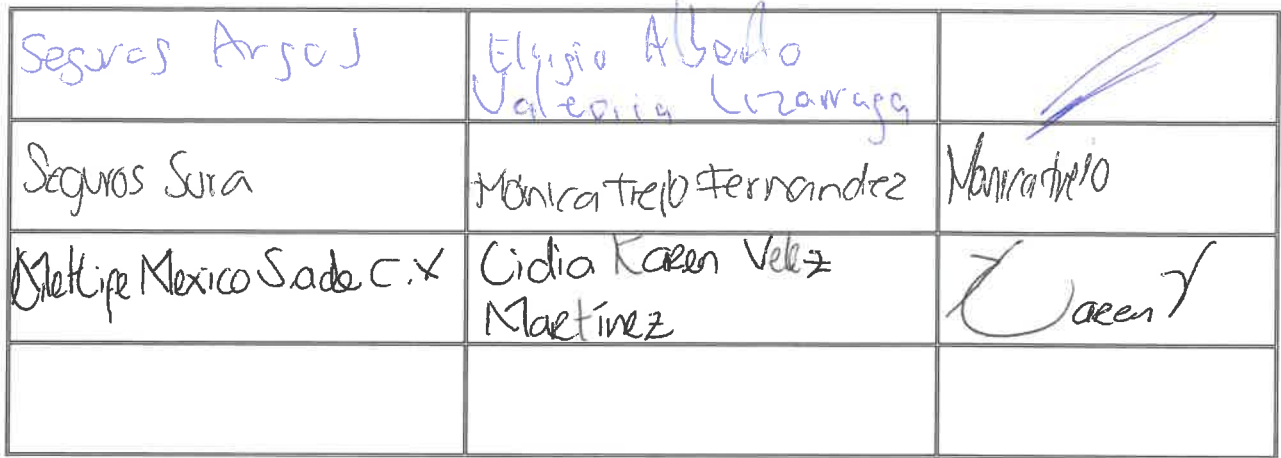 Seguros Argos
Eligio Alberto
Valencia Lizarraga
Seguros Sura
Mónica Trejo Fernandez
Monica trejo
MetLife Mexico S.a de C.V
Lidia Karen Velez
Martínez
Karen V